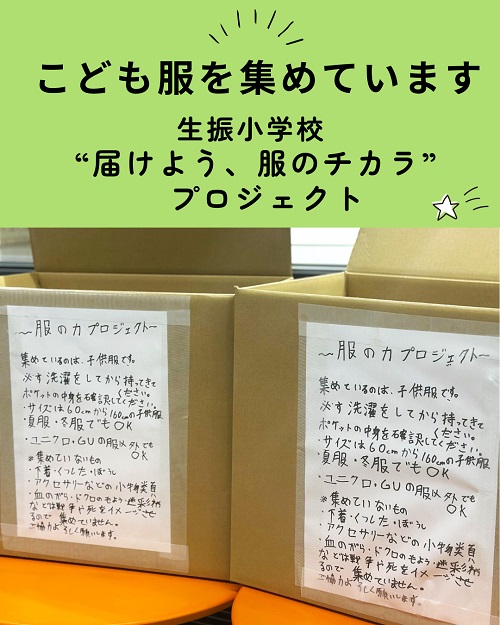 こども服を集めています
生振小学校
“届けよう、服のチカラ”
プロジェクト
〜服の力プロジェクト〜
集めているのは、子供服です。
必ず洗濯をしてから持ってきて
ください。
ポケットの中身を確認してください。
・サイズは60cmから160cmの子供服
・夏服・冬服でもOK
・ユニクロ・GUの服以外でも
OK
※集めていないもの
・下着・くつした・ぼうし
・アクセサリーなどの小物類
・血のがら・ドクロのもよう・迷彩柄
などは戦争や死をイメージさせ
るので 集めていません。
ご協力よろしく願いします。
〜服の力プロジェクト〜
集めているのは、子供服です。
必ず洗濯をしてから持ってきて
ください。
ポケットの中身を確認してください。
・サイズは60cmから160cmの子供服
・夏服・冬服でもOK
・ユニクロ・GUの服以外でも
OK
※集めていないもの
・下着・くつした・ぼうし
・アクセサリーなどの小物類
・血のがら・ドクロのもよう・迷彩柄
などは戦争や死をイメージさせ
るので 集めていません。
ご協力よろしく願いします。